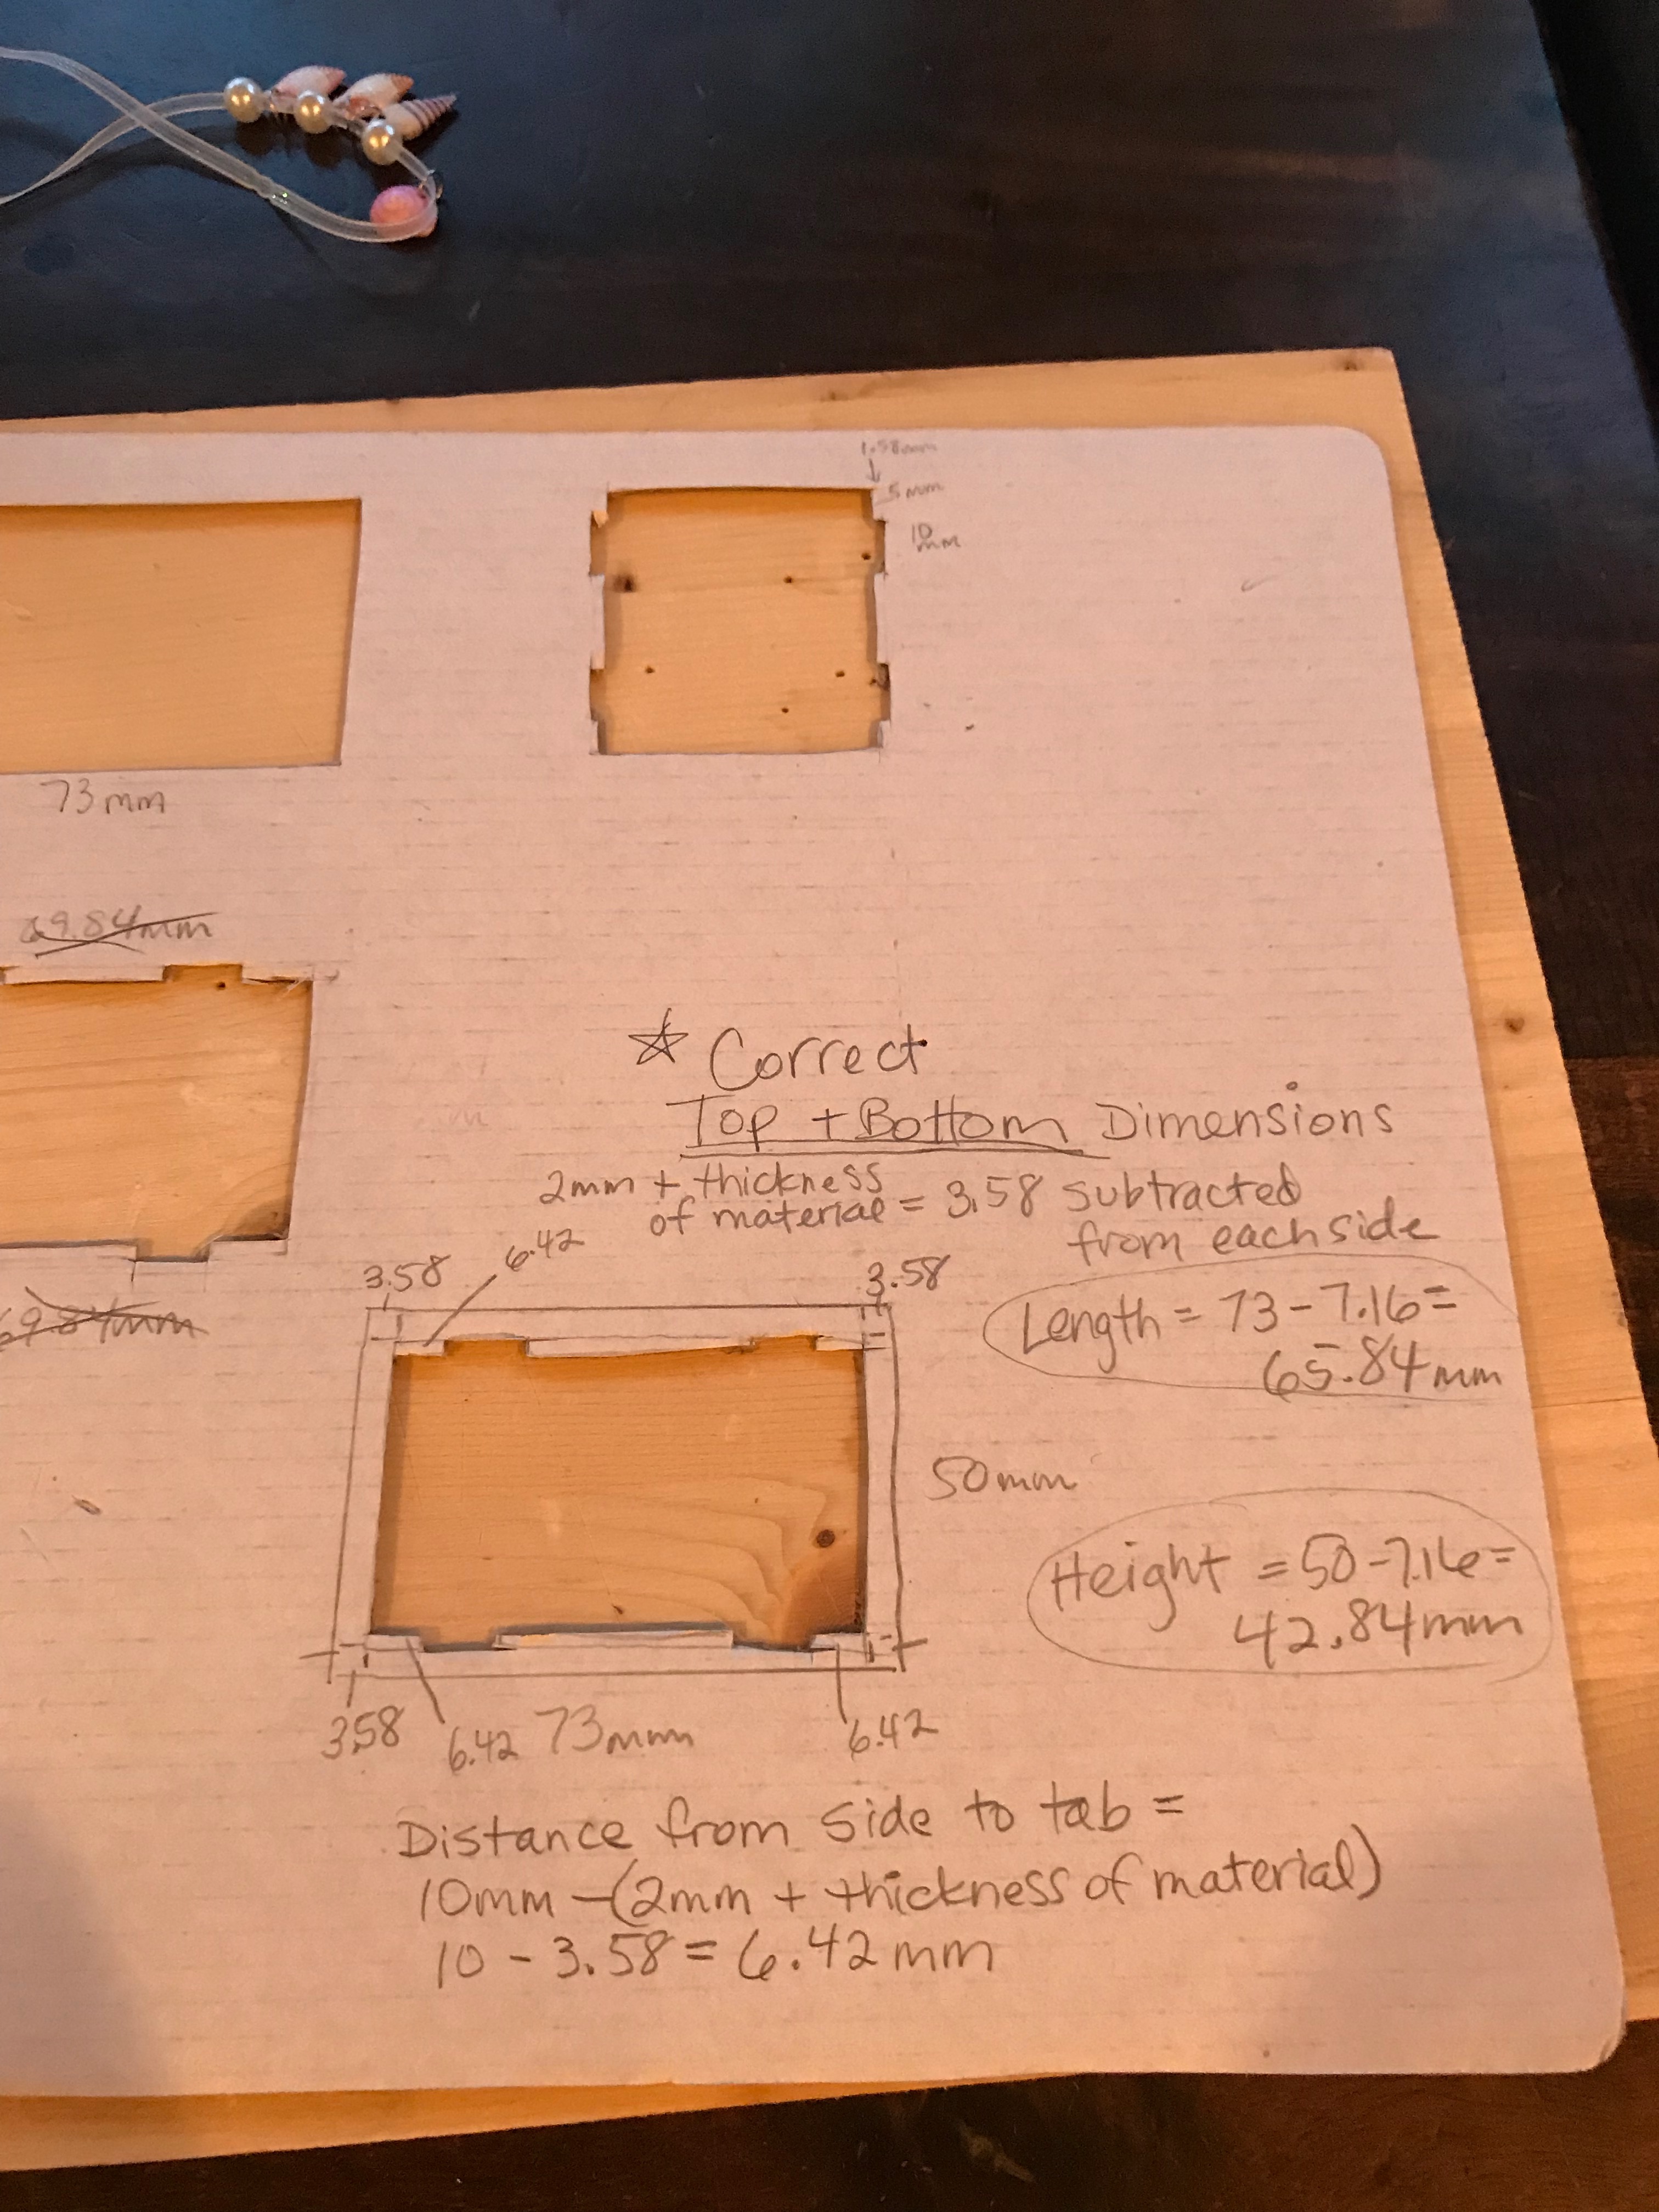 1.58mm
5 mm
10
mm
73mm
69.84mm
☆ Correct
Top + Bottom Dimensions
2mm + thickness
of material = 3.58 subtracted
from each side
6.42
3.58
3.58
Length = 73 - 7.16 =
65.84mm
69.84mm
50mm
Height = 50 - 7.16 =
42.84mm
3.58
6.42
73mm
6.42
Distance from side to tab =
10mm - (2mm + thickness of material)
10 - 3.58 = 6.42 mm